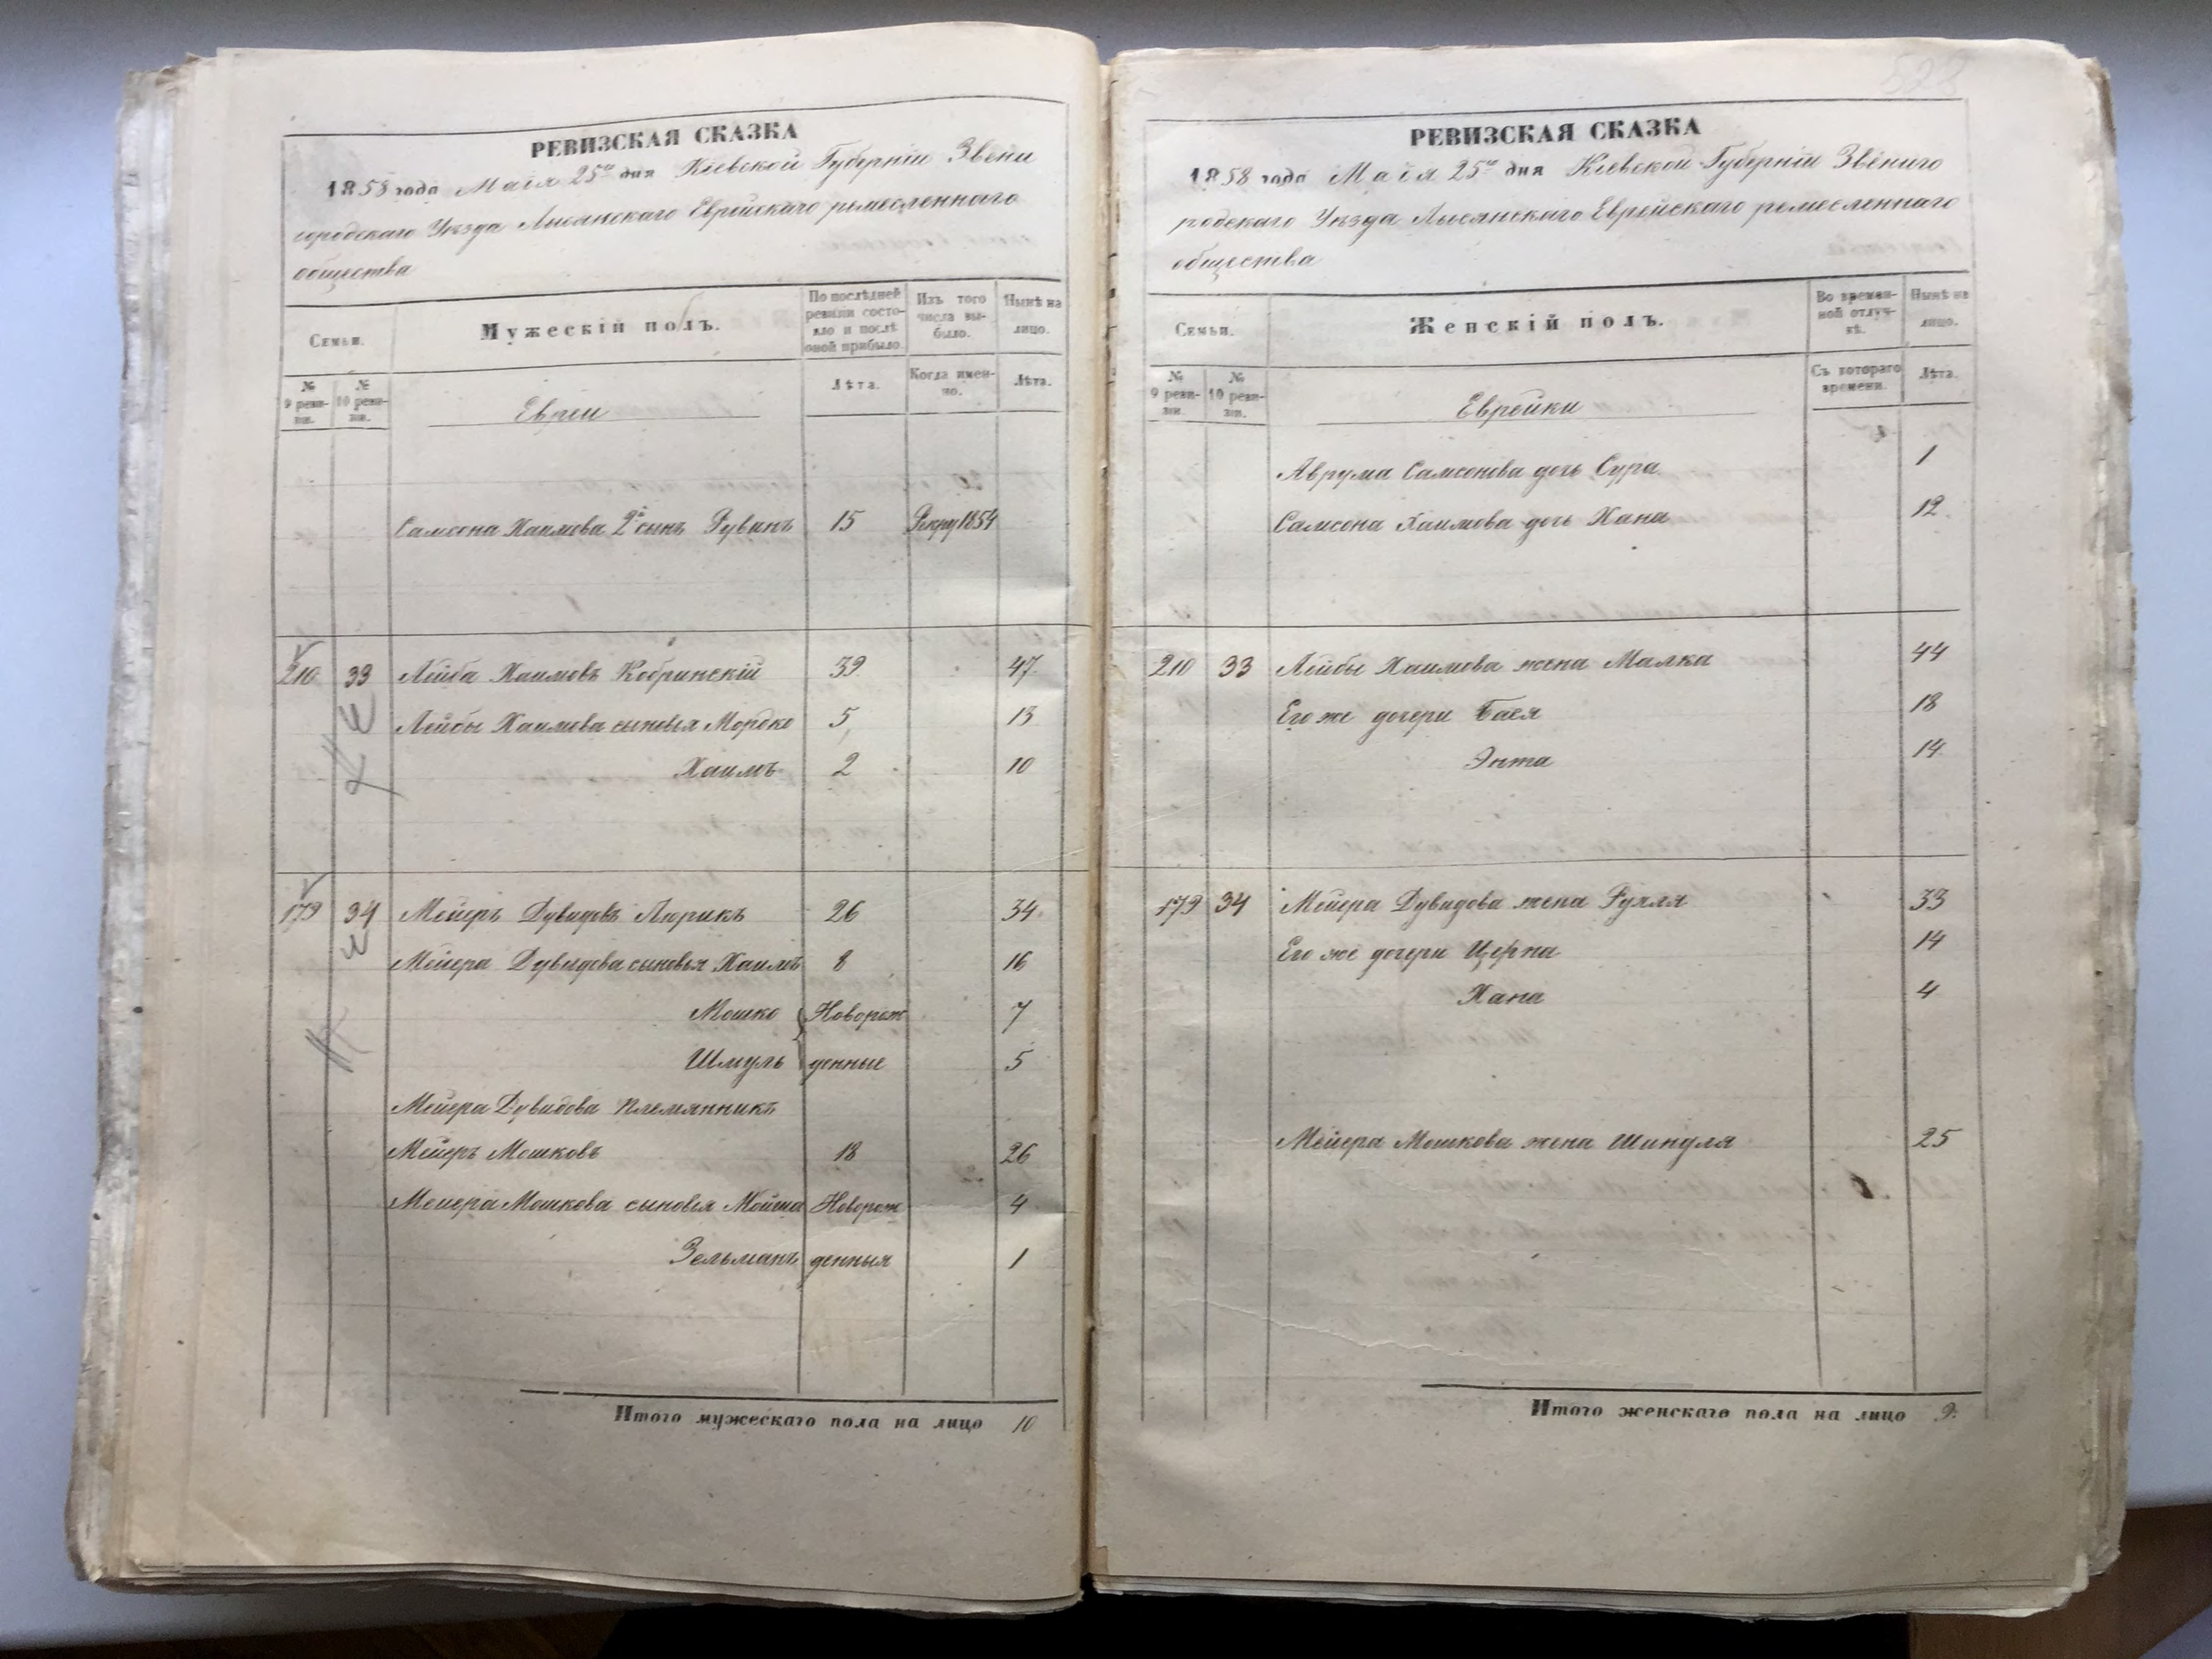 РЕВИЗСКАЯ СКАЗКА
1858 года Маія 25го дня Кіевской Губерніи Звени
городскаго Уѣзда Лысянскаго Еврейскаго ремесленнаго
общества
Семьи.
Мужескій полъ.
По послѣдней ревизіи состояло и послѣ оной прибыло.
Изъ того числа выбыло.
Нынѣ на лицо.
№ 9 ревизіи.
№ 10 ревизіи.
Евреи
Лѣта.
Когда именно.
Лѣта.
Самсона Хаимова 2й сынъ Рувинъ 15 Рекру 1854
210 33 Лейба Хаимовъ Кобринскій 39 47
Лейбы Хаимова сыновья Мордко 5 13
Хаимъ 2 10
179 34 Мейеръ Дувидовъ Люрикъ 26 34
Мейера Дувидова сыновья Хаимъ 8 16
Мошко Новорож 7
Шмуль денные 5
Мейера Дувидова племянникъ
Мейеръ Мошковъ 18 26
Мейера Мошкова сыновья Мойша Новорож 4
Зельманъ денныя 1
Итого мужескаго пола на лицо 10
РЕВИЗСКАЯ СКАЗКА
1858 года Маія 25го дня Кіевской Губерніи Звениго
родскаго Уѣзда Лысянскаго Еврейскаго ремесленнаго
общества
Семьи.
Женскій полъ.
Во временной отлучкѣ.
Нынѣ на лицо.
№ 9 ревизіи.
№ 10 ревизіи.
Еврейки
Съ котораго времени.
Лѣта.
Аврума Самсонова дочь Сура 1
Самсона Хаимова дочь Хана 12
210 33 Лейбы Хаимова жена Малка 44
Его же дочери Бася 18
Энта 14
179 34 Мейера Дувидова жена Рухля 33
Его же дочери Церна 14
Хана 4
Мейера Мошкова жена Шиндля 25
Итого женскаго пола на лицо 9.